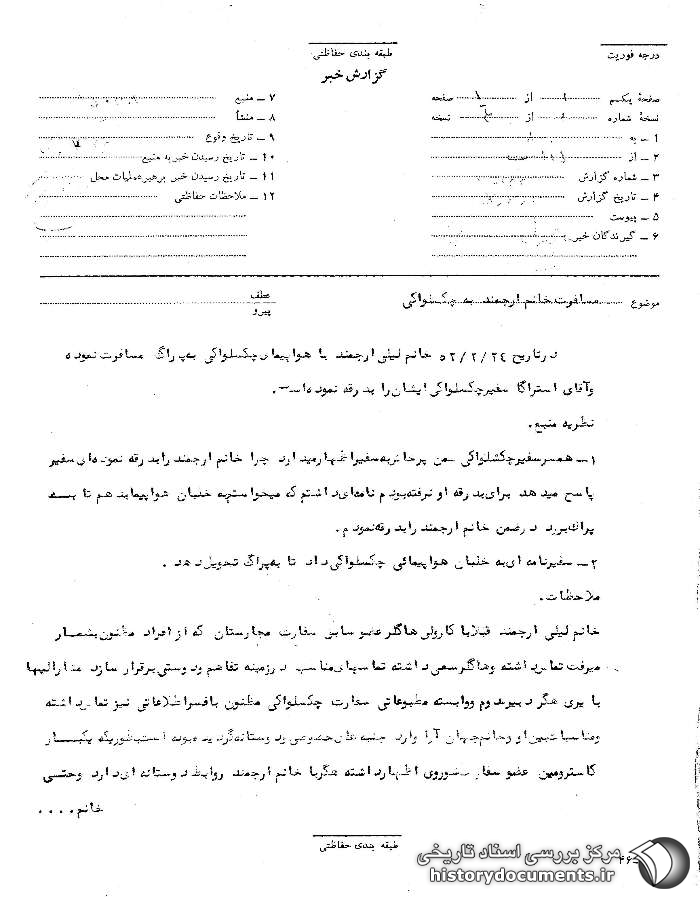 طبقه بندی حفاظتی
درجه فوریت
گزارش خبر
صفحهٔ یکم ۱ از صفحه
نسخهٔ شماره از نسخه
۱ ـ به
۲ ـ از
۳ ـ شماره گزارش
۴ ـ تاریخ گزارش
۵ ـ پیوست
۶ ـ گیرندگان خبر
۷ ـ منبع
۸ ـ منشأ
۹ ـ تاریخ وقوع
۱۰ ـ تاریخ رسیدن خبر به منبع
۱۱ ـ تاریخ رسیدن خبر برهبر عملیات محل
۱۲ ـ ملاحظات حفاظتی
موضوع مسافرت خانم ارجمند به چکسلواکی
عطف
پیرو
در تاریخ ۵۲/۲/۲۴ خانم لیلی ارجمند با هواپیمای چکسلواکی به پراگ مسافرت نموده
و آقای استراگا سفیر چکسلواکی ایشان را بدرقه نموده است.
نظریه منبع.
۱ـ همسر سفیر چکسلواکی ضمن پرخاش به سفیر اظهار میدارد چرا خانم ارجمند را بدرقه نموده‌ای سفیر
پاسخ میدهد برای بدرقه او نرفته بودم نامه‌ای داشتم که میخواستم به خلبان هواپیما بدهم تا به
پراگ ببرد در ضمن خانم ارجمند را بدرقه نمودم.
۲ـ سفیر نامه ای به خلبان هواپیمائی چکسلواکی داد تا به پراگ تحویل دهد.
ملاحظات.
خانم لیلی ارجمند قبلا با کارولی هاگلر عضو سابق سفارت مجارستان که از افراد مظنون بشمار
میرفت تماس داشته و هاگلر سعی داشته تماسهای مناسب در زمینه تفاهم و دوستی برقرار سازد
با یری هگر دبیر دوم و وابسته مطبوعاتی سفارت چکسلواکی مظنون با فسر اطلاعاتی نیز تماس داشته
و مناسبات بین او و خانم جهان آرا وارد جنبه های خصوصی و دوستانه گردیده بوده است بطوریکه یکبار
کاسترومین عضو سفارت شوروی اظهار داشته هگر با خانم ارجمند روابط دوستانه ای دارد و حتی
خانم ....
طبقه بندی حفاظتی
مرکز بررسی اسناد تاریخی
historydocuments.ir